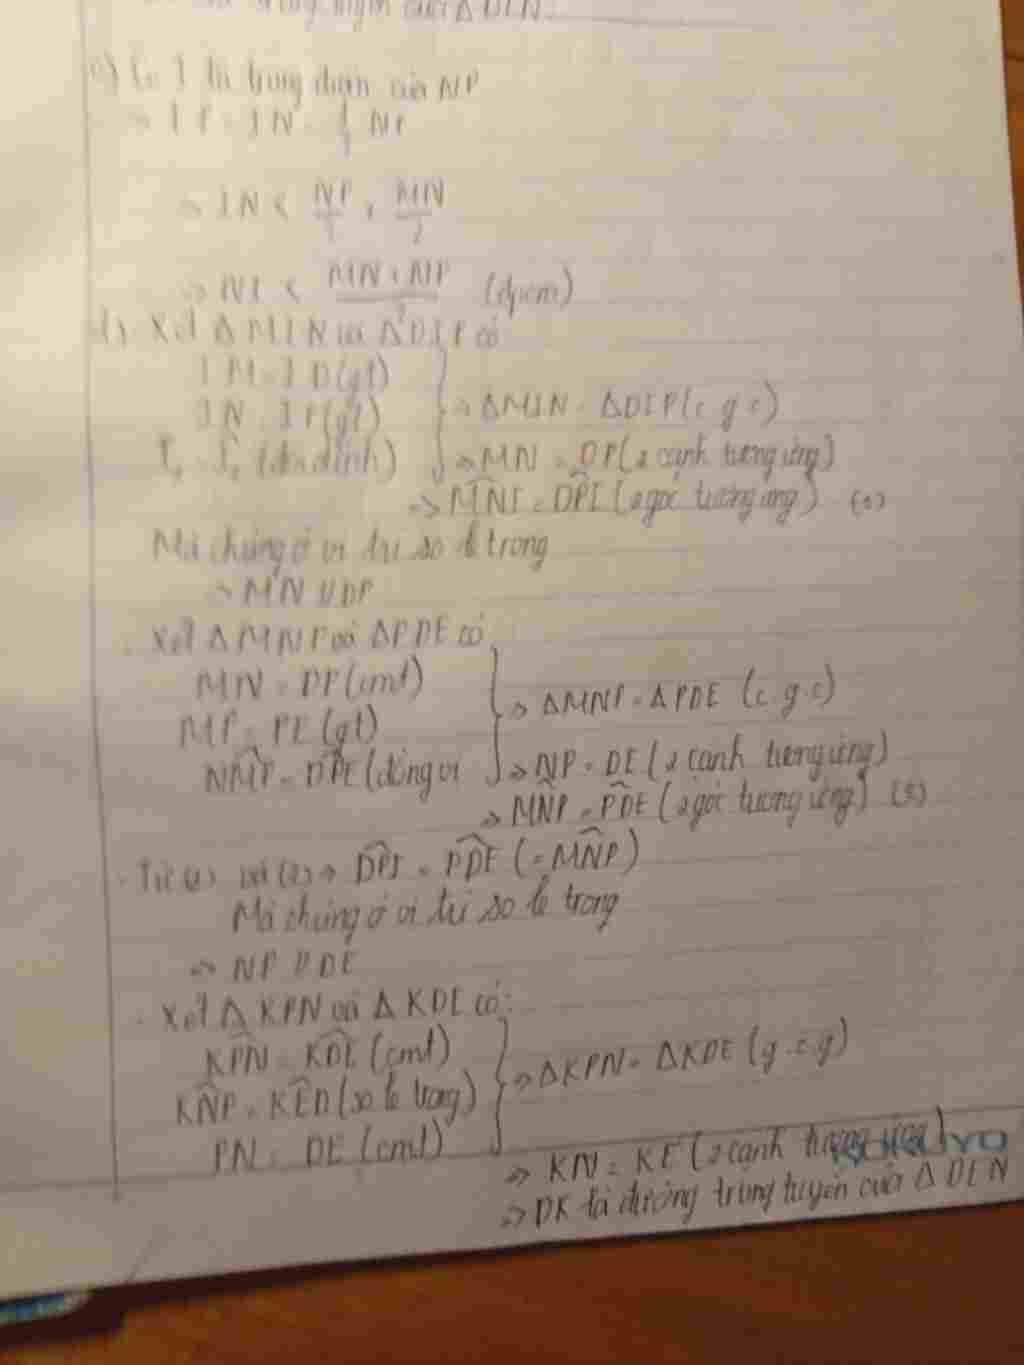 trọng tâm của Δ DEN.
c) Có I là trung điểm của NP
⇒ IP = IN = 1/2 NP
⇒ IN < NP/2 + MN/2
⇒ NI < (MN + NP)/2 (đpcm)
d) Xét Δ MIN và Δ DIP có
IM = ID (gt)
IN = IP (gt) ⇒ ΔMIN = ΔDIP (c g c)
(đối đỉnh) ⇒ MN = DP (2 cạnh tương ứng)
⇒ MNI = DPI (2 góc tương ứng)
Mà chúng ở vị trí so le trong
⇒ MN // DP
. Xét Δ MNP và ΔPDE có
MN = DP (cmt)
MP = PE (gt) ⇒ ΔMNP = ΔPDE (c g.c)
NMP = DPE (đồng vị ⇒ NP = DE (2 cạnh tương ứng)
⇒ MNP = PDE (2 góc tương ứng)
. Từ và (2) ⇒ DPI = PDE (= MNP)
Mà chúng ở vị trí so le trong
⇒ NP // DE
. Xét Δ KPN và Δ KDE có:
KPN = KDE (cmt)
KNP = KED (so le trong) ⇒ ΔKPN = ΔKDE (g.c.g)
PN = DE (cmt)
⇒ KN = KE (2 cạnh tương ứng)
⇒ DK là đường trung tuyến của Δ DEN